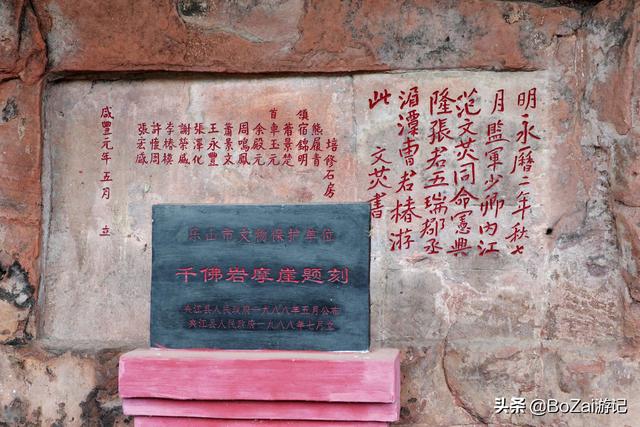 明永曆二年秋七
月監軍少卿內江
范文荧同命憲興
隆張君五瑞郡丞
湄潭曹君椿游
此
文荧書
培修石房
熊履青
領宿錦明
蕭景楚
首車玉元
余殿元
周鳴鳳
蕭景文
王永豐
張澤化
謝榮盛
李椿模
許愷周
張宏盛
咸豐元年五月 立
乐山市文物保护单位
千佛岩摩崖题刻
夹江县人民政府一九八八年五月公布
夹江县人民政府一九八八年七月立
头条 @BoZai游记